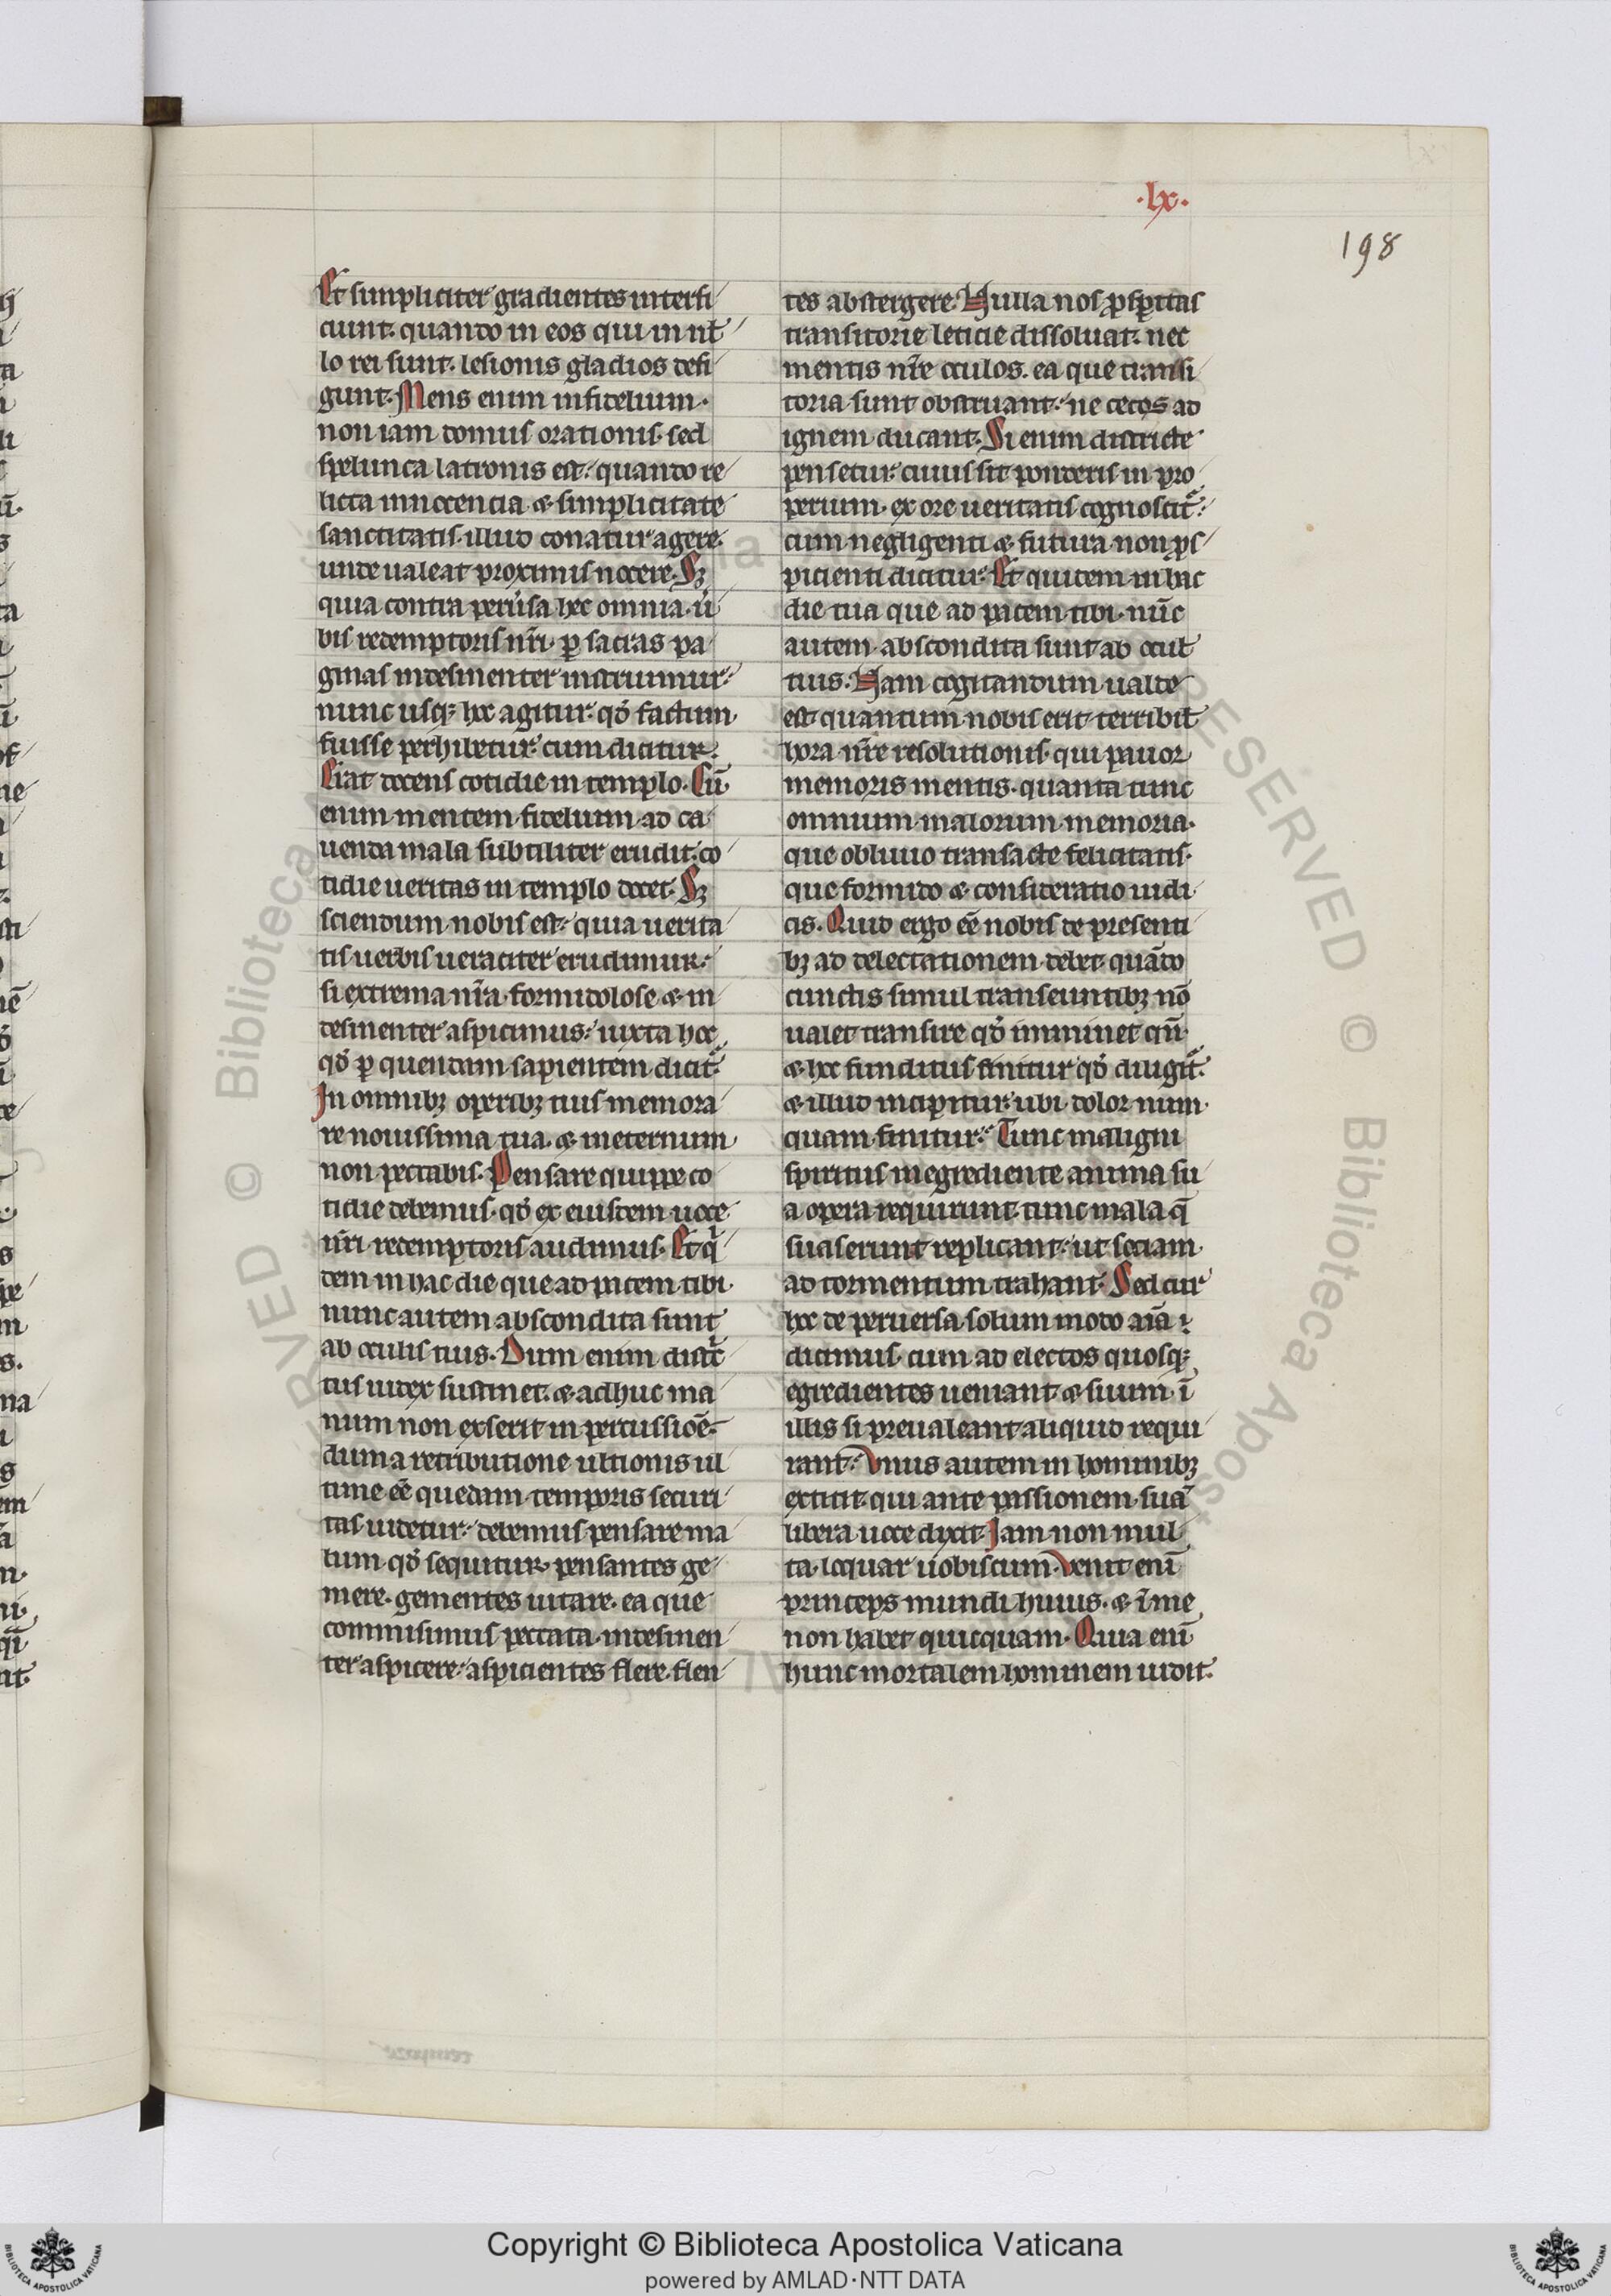 ·lx·
198
Et simpliciter gradientes interfi
ciunt. quando in eos qui in nł
lo rei sunt. lesionis gladios defi
gunt. Mens enim infidelium.
non iam domus orationis. sed
spelunca latronis est. quando re
licta innocencia & simplicitate
sanctitatis. illud conatur agere.
unde ualeat proximis nocere. Sꝫ
quia contra peruͥsa hec omnia. uͥ
bis redemptoris nr̄i. ꝑ sacras pa
ginas indesinenter instruimur.
nunc usqꝫ hoc agitur. qđ factum
fuisse perhibetur. cum dicitur.
Erat docens cotidie in templo. Cū
enim mentem fidelium ad ca
uenda mala subtiliter erudit. co
tidie ueritas in templo docet. Sꝫ
sciendum nobis est. quia uerita
tis uerbis ueraciter erudimur.
si extrema nr̄a formidolose & in
desinenter aspicimus. iuxta hoc
qđ ꝑ quendam sapientem dicit̄.
In omnibꝫ operibꝫ tuis memora
re nouissima tua. & ineternum
non peccabis. Pensare quippe co
tidie debemus. qđ ex eiusdem uoce
nr̄i redemptoris audiuimus. Et qͥ
dem in hac die que ad pacem tibi.
nunc autem abscondita sunt
ab oculis tuis. Dum enim distͥc
tus iudex sustinet. & adhuc ma
num non exserit in percussioē.
dum a retributione ultionis ul
time eē quedam temporis securi
tas uidetur. debemus pensare ma
lum qđ sequitur. pensantes ge
mere. gementes uitare. ea que
commisimus peccata. indesinen
ter aspicere. aspicientes flere. flen
tes abstergere. Nulla nos ꝓsꝑitas
transitorie leticie dissoluat. nec
mentis nr̄e oculos. ea que transi
toria sunt obstruant. ne cecos ad
ignem ducant. Si enim districte
pensetur. cuius sit ponderis in pro
perium. ex ore ueritatis cognoscit̄.
cum negligenti & futura non ꝓs
picienti dicitur. Et quidem in hac
die tua que ad pacem tibi. nūc
autem abscondita sunt ab ocul̄
tuis. Nam cogitandum ualde
est quantum nobis erit terribil̄
hora nr̄e resolutionis. qui pauor
memoris mentis. quanta tunc
omnium malorum memoria.
que obliuio transacte felicitatis.
que formido & consideratio iudi
cis. Quid ergo eē nobis de presenti
bꝫ ad delectationem debet. quādo
cunctis simul transeuntibꝫ nō
ualet transire qđ imminet. qn̄
& hoc funditus finitur qđ diligit̄.
& illud incipitur. ubi dolor num
quam finitur. Tunc maligni
spiritus inegrediente anima su
a opera requirunt. tunc mala q̄
suaserunt replicant. ut sociam
ad tormentum trahant. Sed cur
hoc de peruersa solum modo aīa
dicimus. cum ad electos quosqꝫ
egredientes ueniant & suum ī
illis si preualeant aliquid requi
rant. Vnus autem in hominibꝫ
extitit. qui ante passionem suā
libera uoce dixit. Iam non mul
ta loquar uobiscum. Venit enī
princeps mundi huius. & ī me
non habet quicquam. Quia enī
hunc mortalem hominem uidit.
Copyright © Biblioteca Apostolica Vaticana
powered by AMLAD·NTT DATA